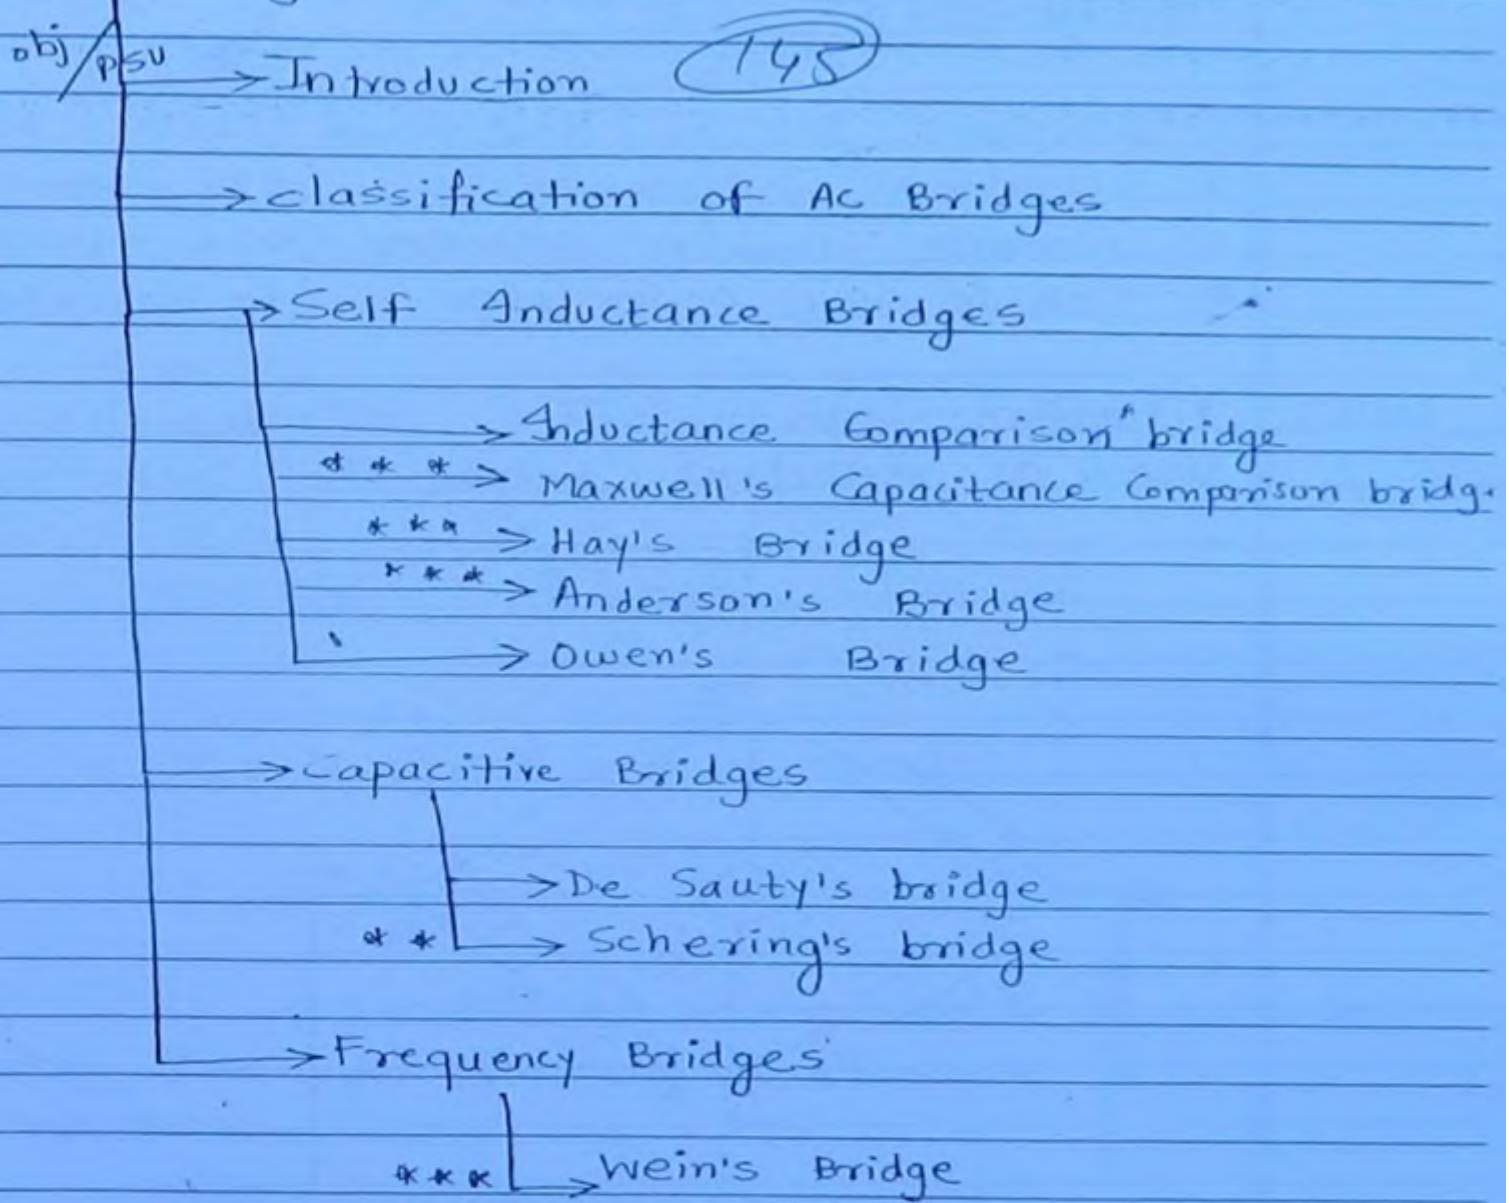 obj/PSU
145
→ Introduction
→ classification of AC Bridges
→ Self Inductance Bridges
→ Inductance Comparison bridge
*** → Maxwell's Capacitance Comparison bridg
*** → Hay's Bridge
*** → Anderson's Bridge
→ Owen's Bridge
→ Capacitive Bridges
→ De Sauty's bridge
** → Schering's bridge
→ Frequency Bridges
*** → Wein's Bridge